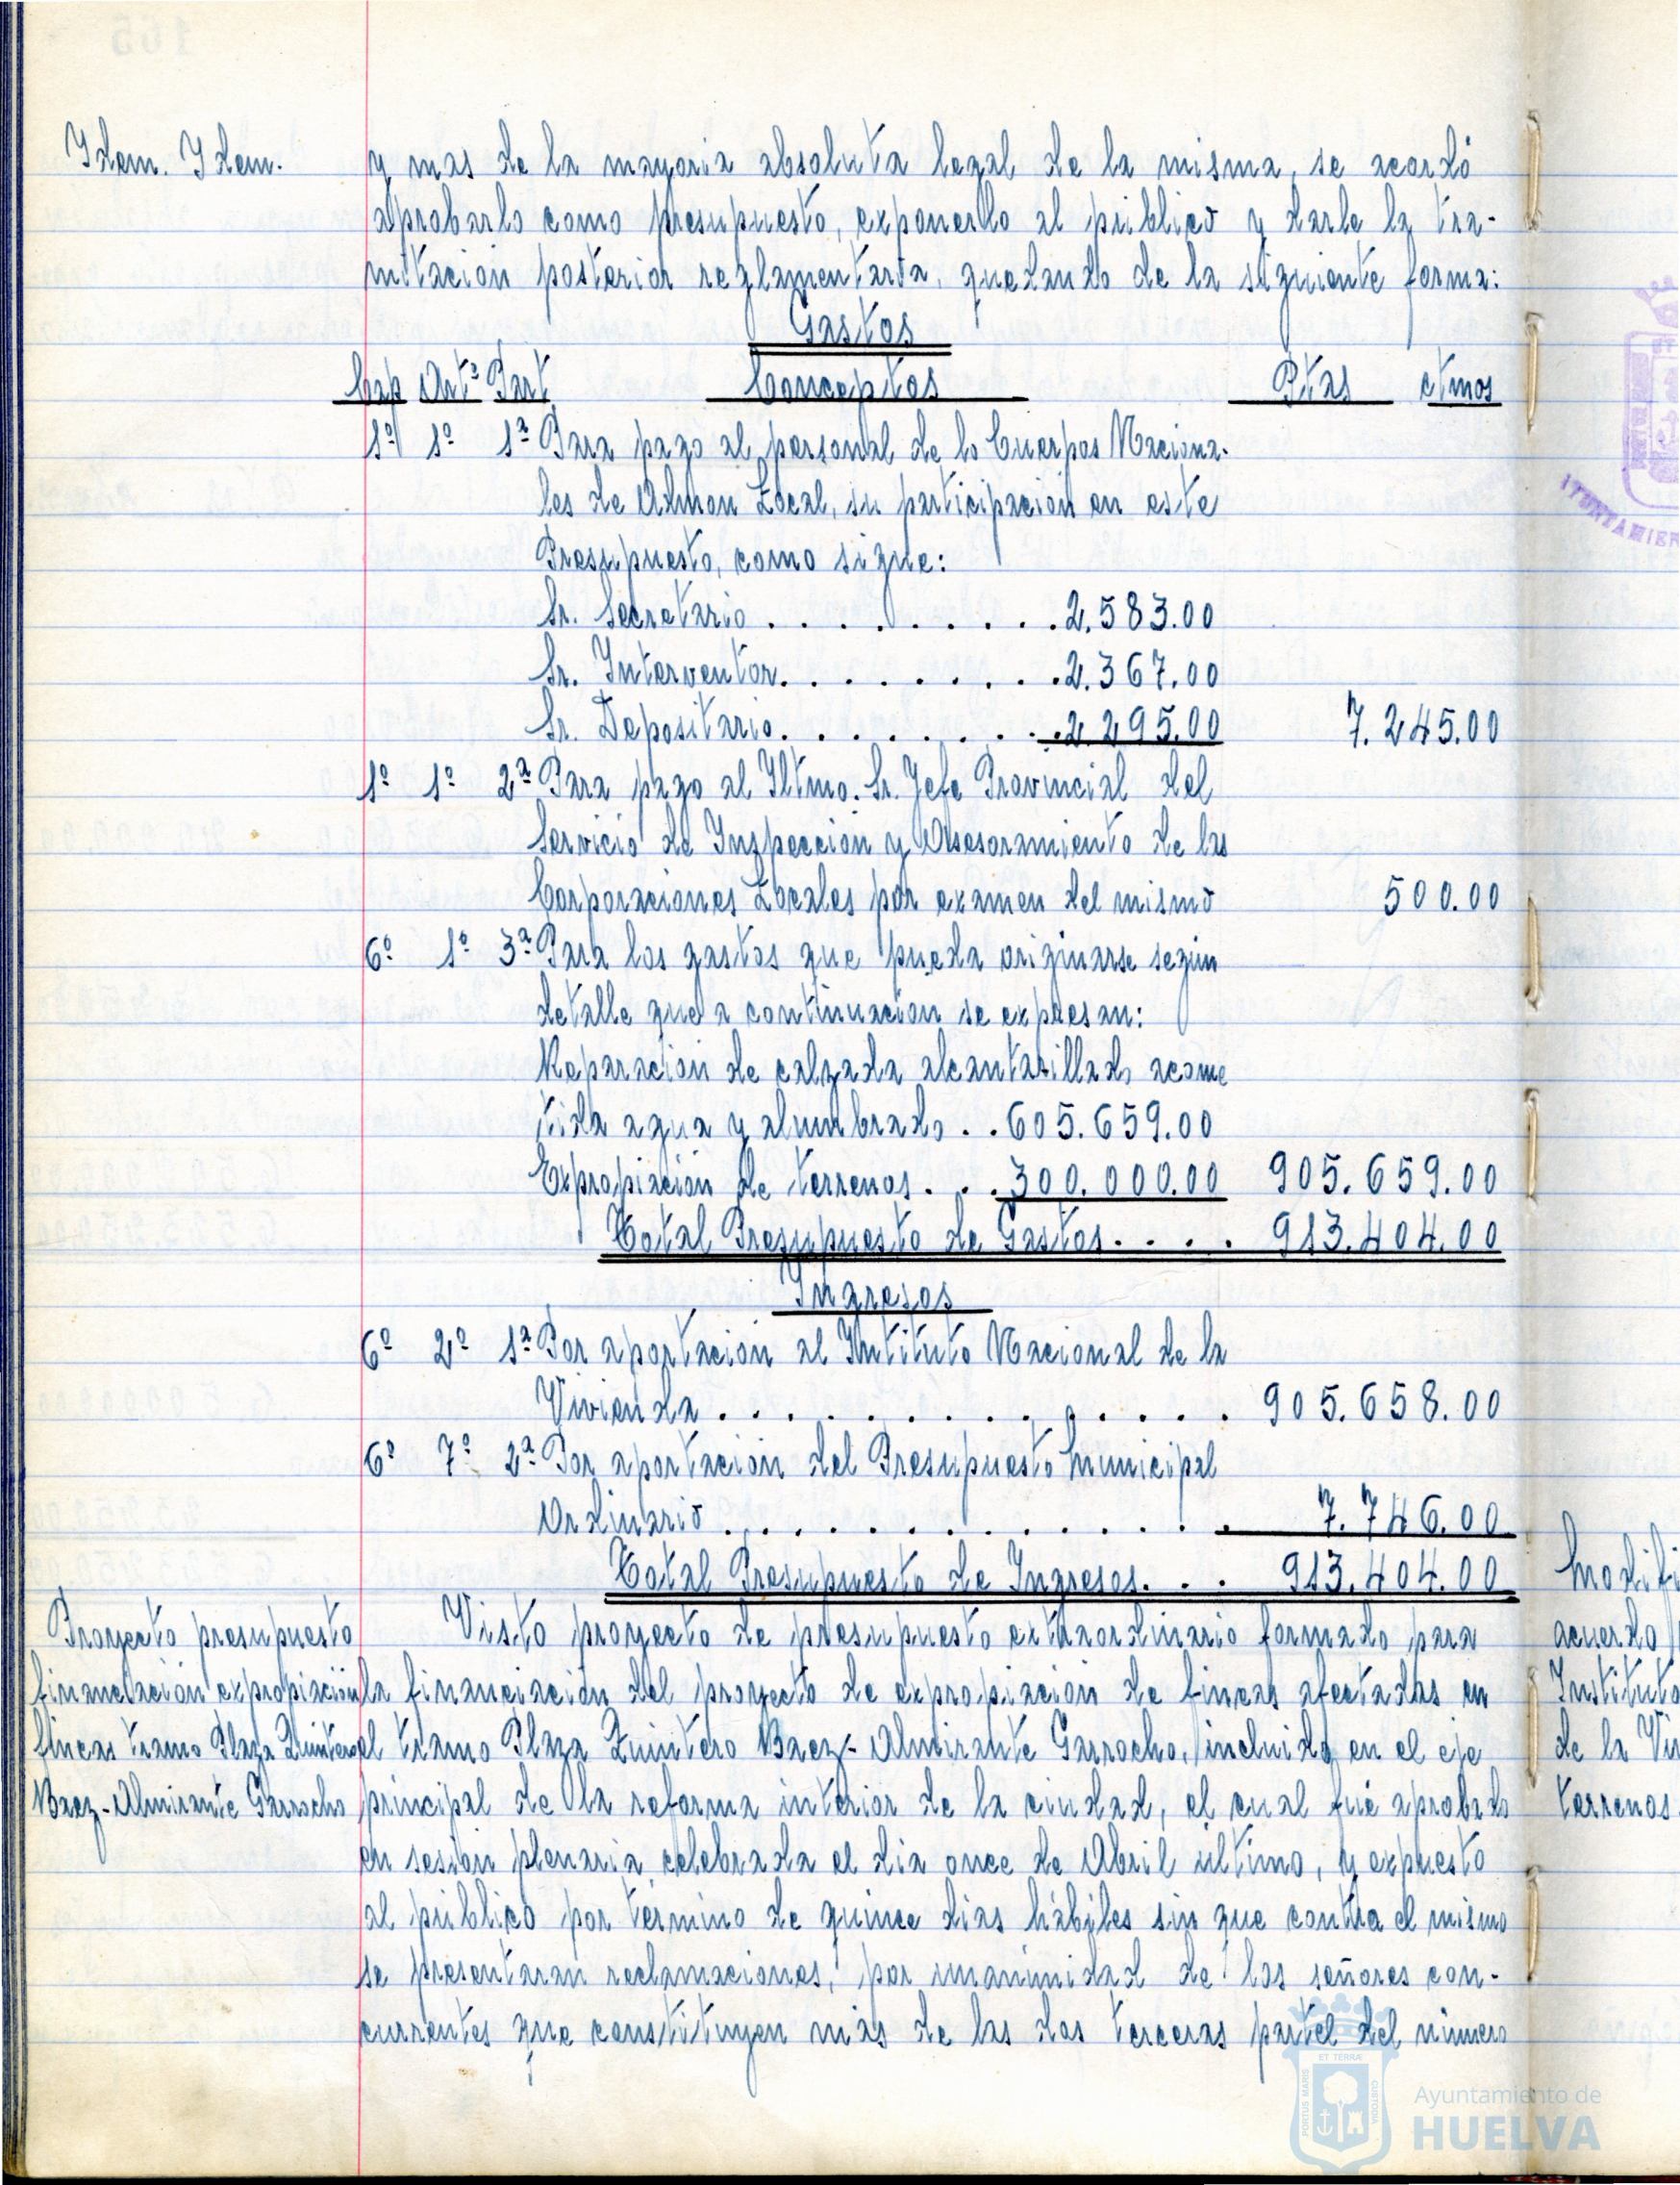 Idem. Idem.
y mas de la mayoria absoluta legal de la misma, se acordó
aprobarlo como presupuesto, exponerlo al público y darle la tra-
mitacion posterior reglamentaria, quedando de la siguiente forma:
Gastos
Cap Artº Part Conceptos Ptas ctmos
1º 1º 1ª Para pago al personal de lo Cuerpos Naciona-
les de Admon Local, su participacion en este
Presupuesto, como sigue:
Sr. Secretario . . . . . . . . . 2.583.00
Sr. Interventor. . . . . . . . . 2.367.00
Sr. Depositario. . . . . . . . . 2.295.00 7.245.00
1º 1º 2ª Para pago al Iltmo. Sr. Jefe Provincial del
Servicio de Inspeccion y Asesoramiento de las
Corporaciones Locales por examen del mismo 500.00
6º 1º 3ª Para los gastos que pueda originarse segun
detalle que a continuacion se expresan:
Reparacion de calzada alcantarillado acome
tida agua y alumbrado . . 605.659.00
Expropiación de terrenos . . . 300.000.00 905.659.00
Total Presupuesto de Gastos . . . . 913.404.00
Ingresos
6º 2º 1ª Por aportación al Intituto Nacional de la
Vivienda . . . . . . . . . . . . . 905.658.00
6º 7º 2ª Por aportacion del Presupuesto Municipal
Ordinario . . . . . . . . . . . . 7.746.00
Total Presupuesto de Ingresos. . . 913.404.00
Proyecto presupuesto
financiacion expropiación
fincas tramo Plaza Quintero
Baez-Almirante Garrocho
Visto proyecto de presupuesto extraordinario formado para
la financiación del proyecto de expropiacion de fincas afectadas en
el tramo Plaza Quintero Baez- Almirante Garrocho, incluido en el eje
principal de la reforma interior de la ciudad, el cual fué aprobado
en sesion plenaria celebrada el dia once de Abril ultimo, y expuesto
al público por termino de quince dias hábiles sin que contra el mismo
se presentaran reclamaciones, por unanimidad de los señores con-
currentes que constituyen más de las dos terceras partel del número
Modifi
acuerdo
Instituto
de la Vi
terrenos.
ET TERRÆ
PORTUS MARIS
CUSTODIA
Ayuntamiento de
HUELVA